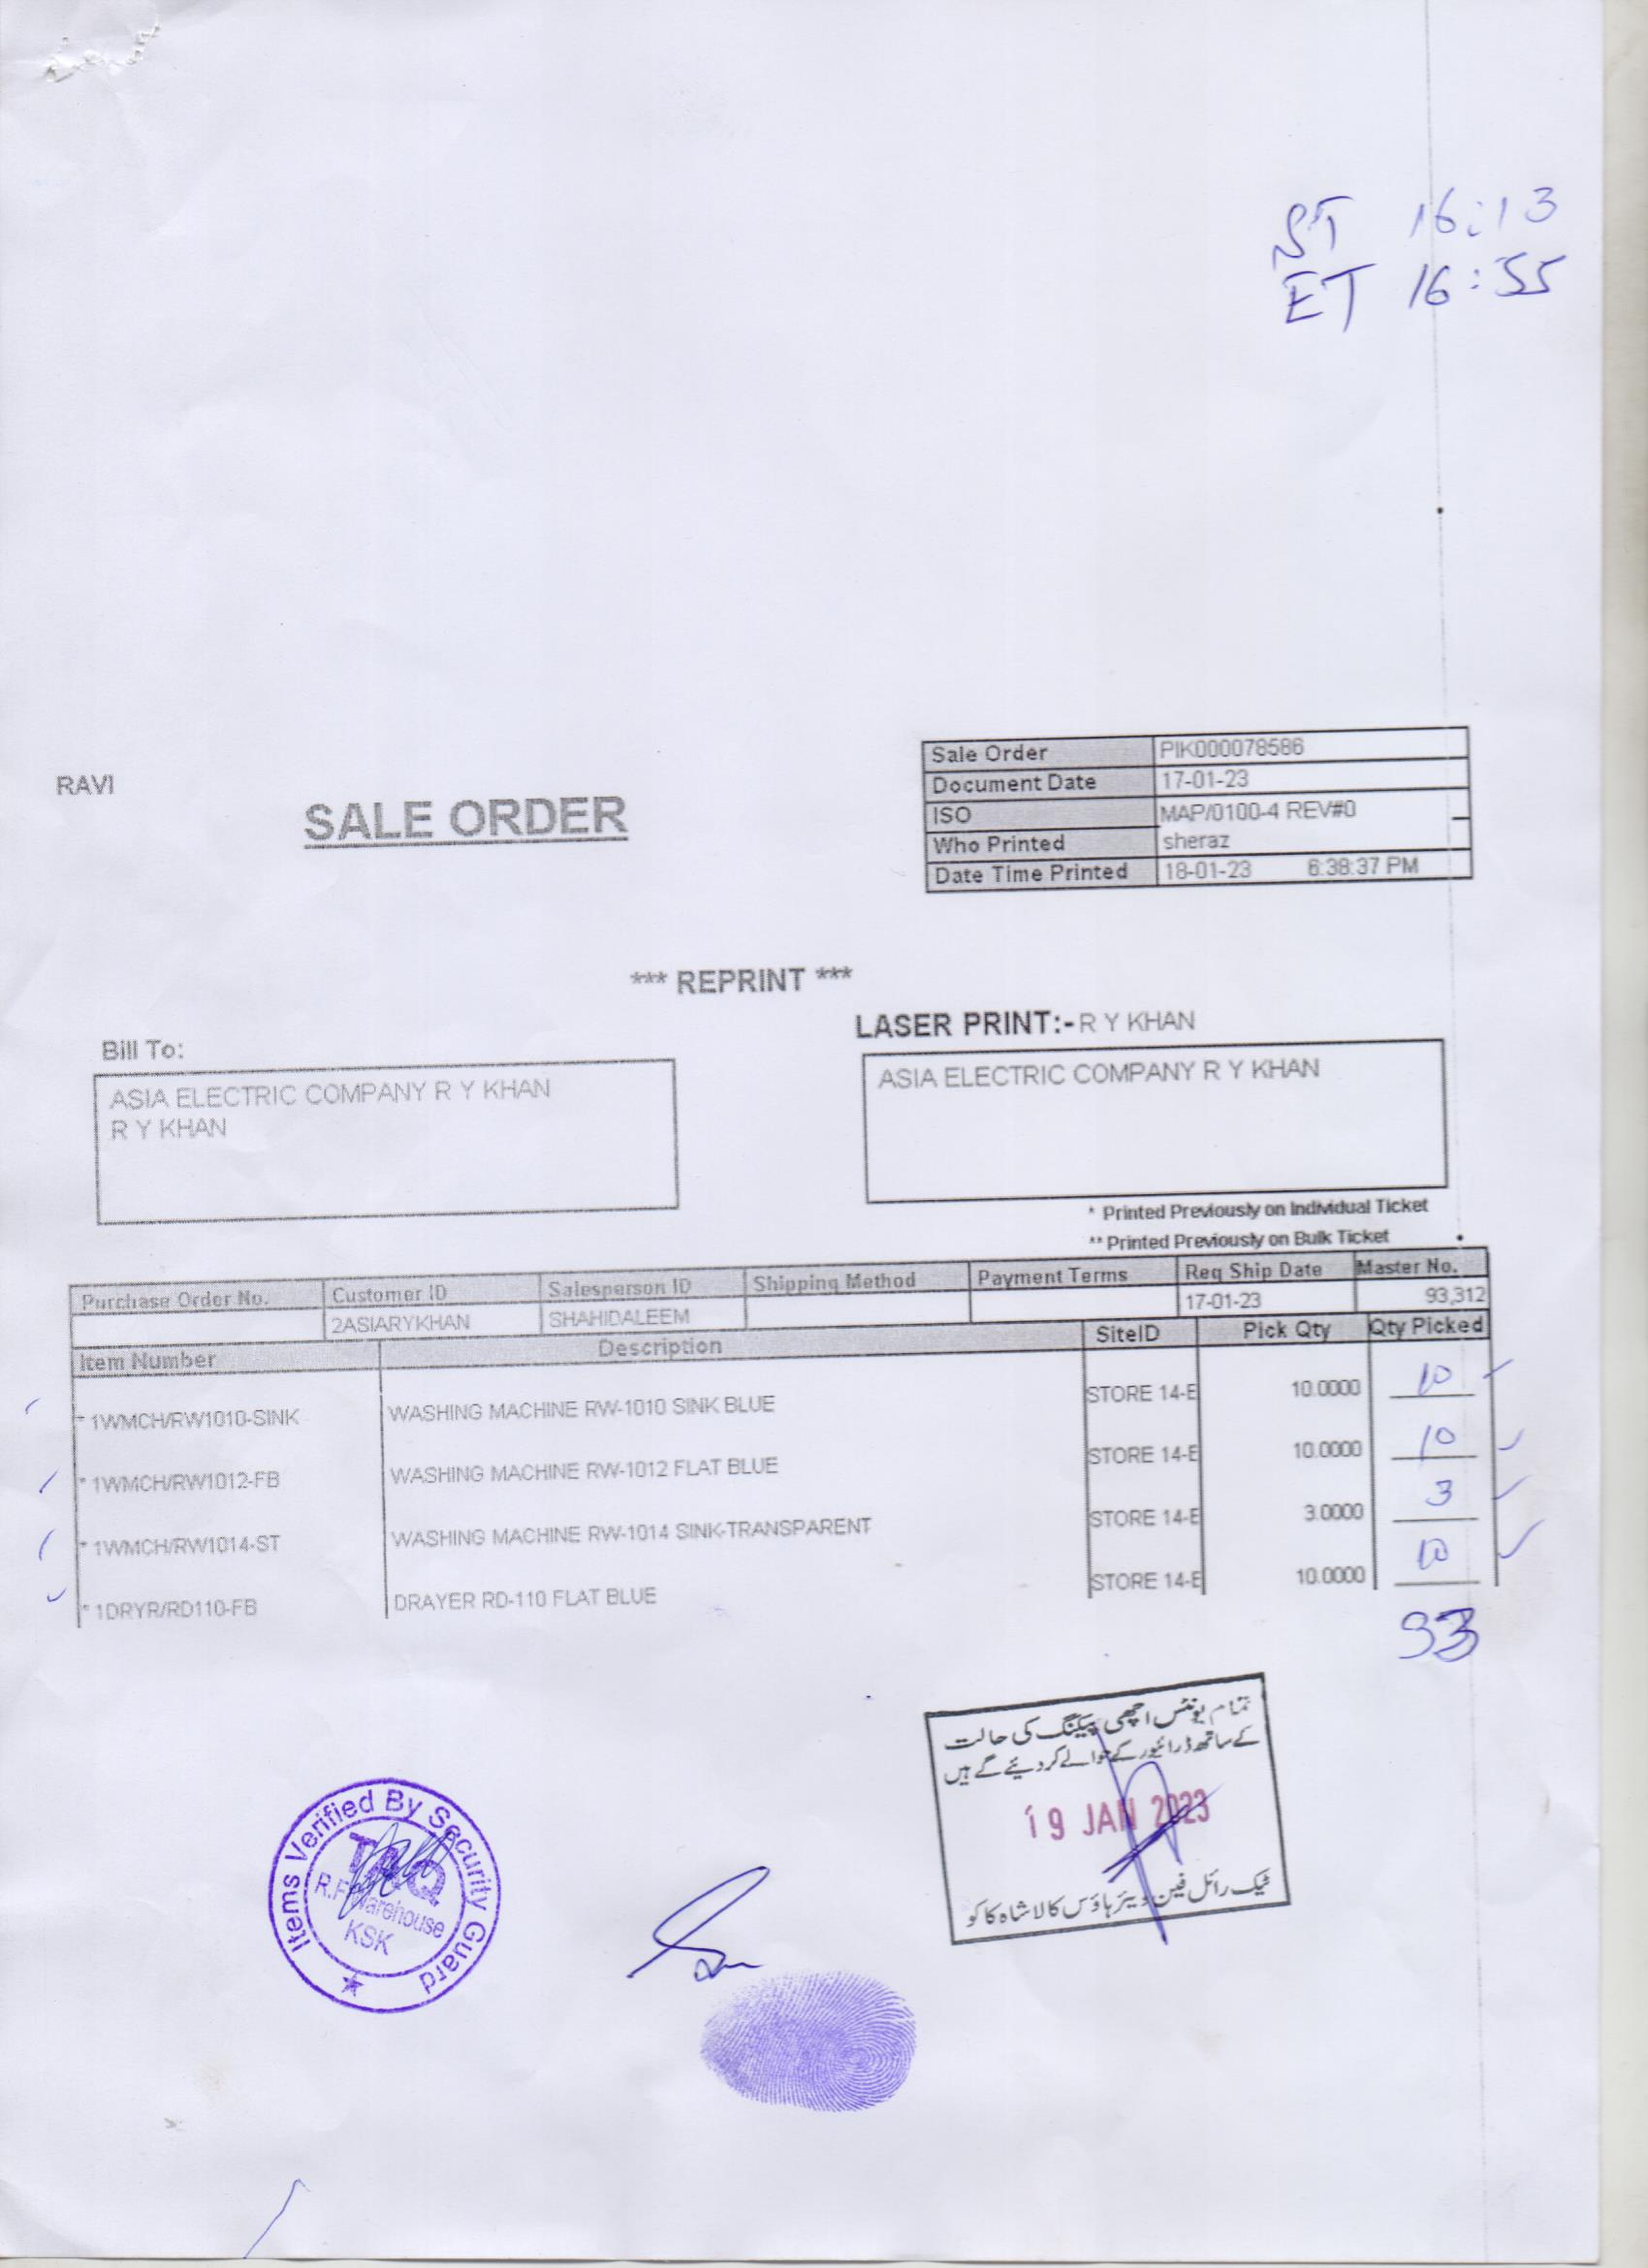 ST 16:13
ET 16:55
RAVI
SALE ORDER
Sale Order PIK000078586
Document Date 17-01-23
ISO MAP/0100-4 REV#0
Who Printed sheraz
Date Time Printed 18-01-23 6:38:37 PM
*** REPRINT ***
LASER PRINT:- R Y KHAN
Bill To:
ASIA ELECTRIC COMPANY R Y KHAN
R Y KHAN
ASIA ELECTRIC COMPANY R Y KHAN
* Printed Previously on Individual Ticket
** Printed Previously on Bulk Ticket
Purchase Order No. Customer ID Salesperson ID Shipping Method Payment Terms Req Ship Date Master No.
2ASIARYKHAN SHAHIDALEEM 17-01-23 93,312
Item Number Description SiteID Pick Qty Qty Picked
* 1WMCH/RW1010-SINK WASHING MACHINE RW-1010 SINK BLUE STORE 14-E 10.0000 10
* 1WMCH/RW1012-FB WASHING MACHINE RW-1012 FLAT BLUE STORE 14-E 10.0000 10
* 1WMCH/RW1014-ST WASHING MACHINE RW-1014 SINK-TRANSPARENT STORE 14-E 3.0000 3
* 1DRYR/RD110-FB DRAYER RD-110 FLAT BLUE STORE 14-E 10.0000 10
33
تمام یونٹس اچھی پیکنگ کی حالت
کے ساتھ ڈرائیور کے حوالے کر دیئے گے ہیں
19 JAN 2023
ٹیک رائل فین ویئر ہاؤس کالا شاہ کاکو
Items Verified By Security Guard
R.F Warehouse
KSK